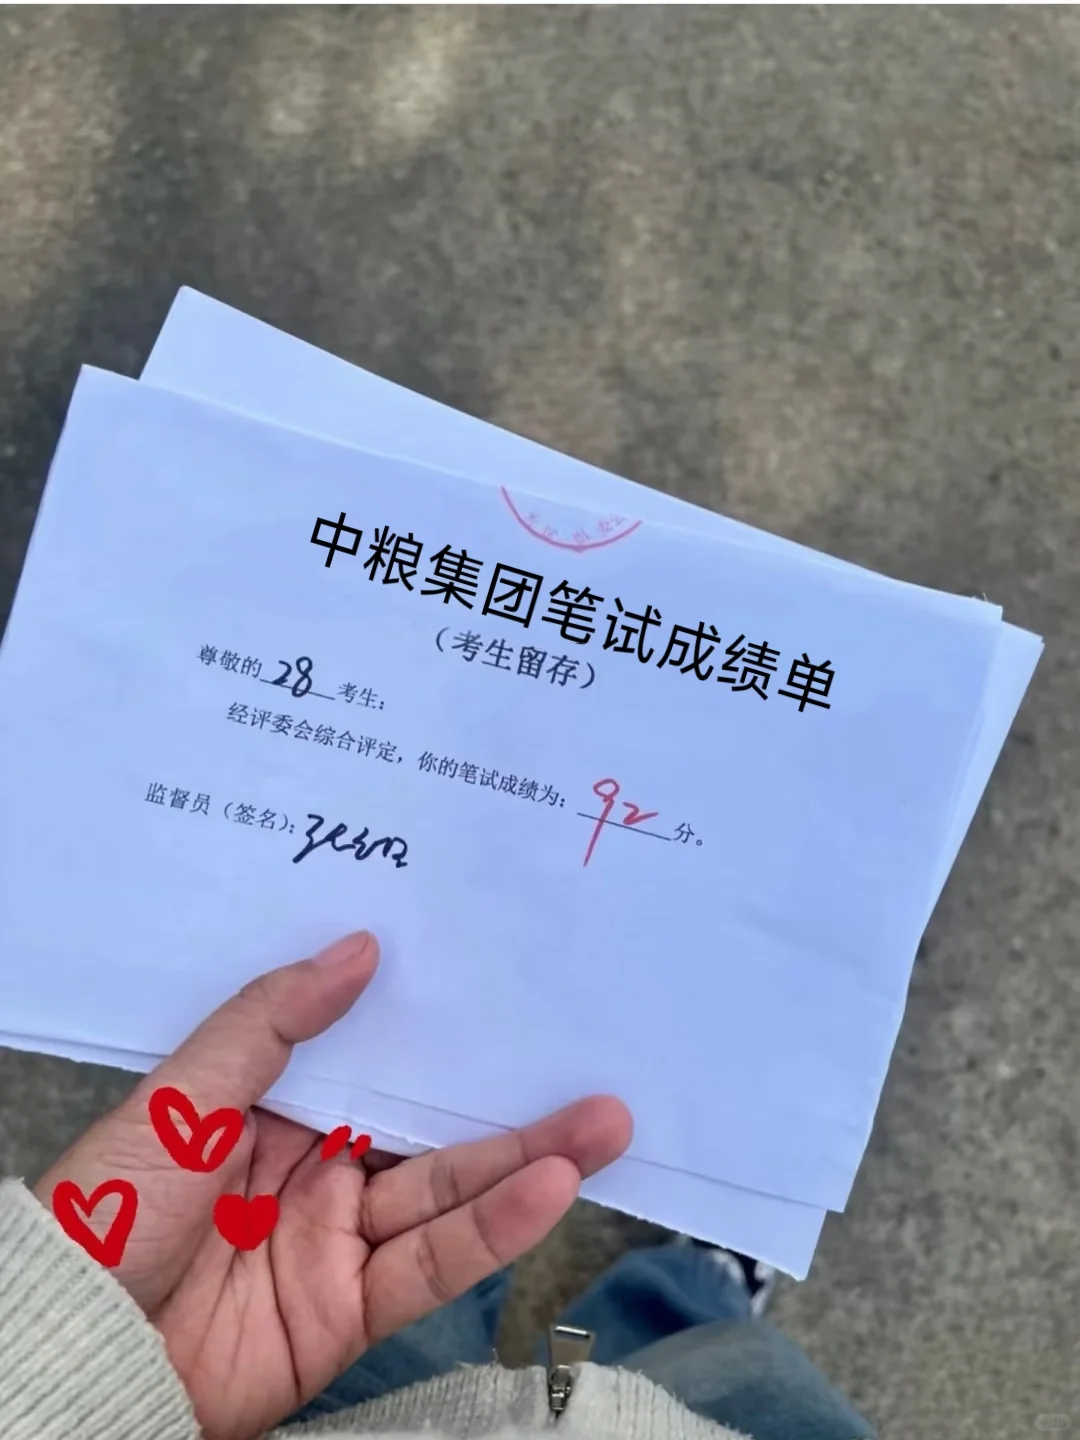 中粮集团笔试成绩单
（考生留存）
尊敬的 28 考生：
经评委会综合评定，你的笔试成绩为： 92 分。
监督员（签名）：